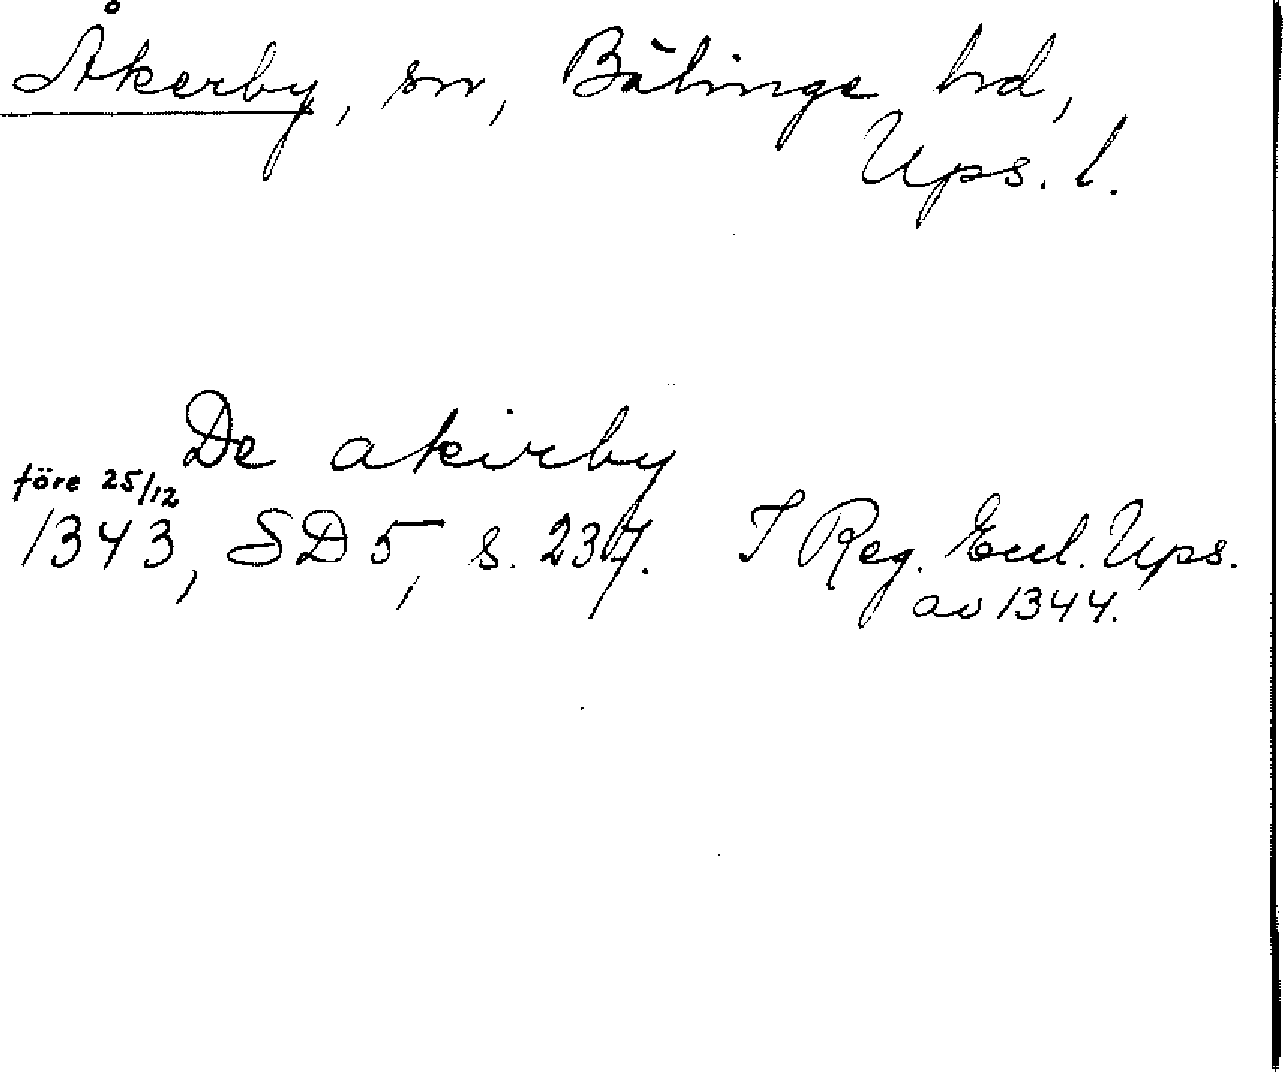 Åkerby, sn, Bälinge hd,
Ups. l.
De akirby
före 25/12
1343, SD 5, s. 237. I Reg. Eccl. Ups.
av 1344.